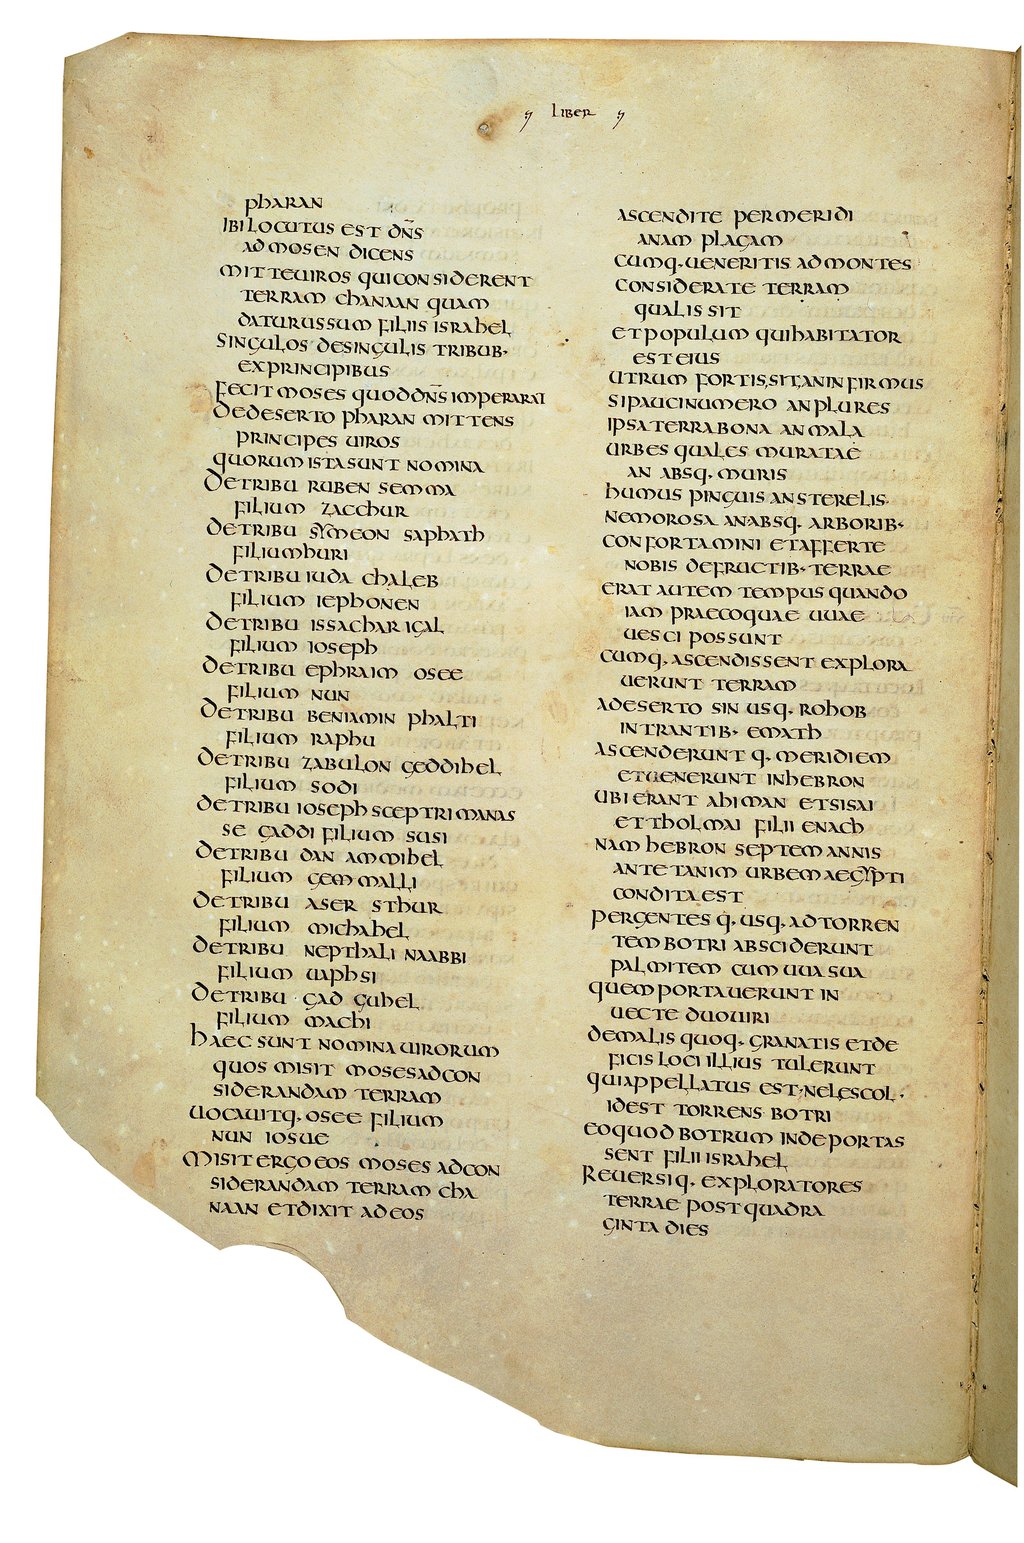 LIBER
pharan
IBI LOCUTUS EST DN̄S
AD MOSEN DICENS
MITTE UIROS QUI CONSIDERENT
TERRAM CHANAAN QUAM
DATURUS SUM FILIIS ISRAHEL
SINGULOS DE SINGULIS TRIBUB·
EX PRINCIPIBUS
FECIT MOSES QUOD DN̄S IMPERARAT
DE DESERTO PHARAN MITTENS
PRINCIPES UIROS
QUORUM ISTA SUNT NOMINA
DE TRIBU RUBEN SEMMA
FILIUM ZACCHUR
DE TRIBU SYMEON SAPHATH
FILIUM HURI
DE TRIBU IUDA CHALEB
FILIUM IEPHONEN
DE TRIBU ISSACHAR IGAL
FILIUM IOSEPH
DE TRIBU EPHRAIM OSEE
FILIUM NUN
DE TRIBU BENIAMIN PHALTI
FILIUM RAPHU
DE TRIBU ZABULON GEDDIHEL
FILIUM SODI
DE TRIBU IOSEPH SCEPTRI MANAS
SE GADDI FILIUM SUSI
DE TRIBU DAN AMMIHEL
FILIUM GEMMALLI
DE TRIBU ASER STHUR
FILIUM MICHAHEL
DE TRIBU NEPTHALI NAABBI
FILIUM UAPHSI
DE TRIBU GAD GUHEL
FILIUM MACHI
HAEC SUNT NOMINA UIRORUM
QUOS MISIT MOSES AD CON
SIDERANDAM TERRAM
UOCAUITQ· OSEE FILIUM
NUN IOSUE
MISIT ERGO EOS MOSES AD CON
SIDERANDAM TERRAM CHA
NAAN ET DIXIT AD EOS
ASCENDITE PER MERIDI
ANAM PLAGAM
CUMQ· UENERITIS AD MONTES
CONSIDERATE TERRAM
QUALIS SIT
ET POPULUM QUI HABITATOR
EST EIUS
UTRUM FORTIS SIT AN INFIRMUS
SI PAUCI NUMERO AN PLURES
IPSA TERRA BONA AN MALA
URBES QUALES MURATAE
AN ABSQ· MURIS
HUMUS PINGUIS AN STERELIS
NEMOROSA AN ABSQ· ARBORIB·
CONFORTAMINI ET AFFERTE
NOBIS DE FRUCTIB· TERRAE
ERAT AUTEM TEMPUS QUANDO
IAM PRAECOQUAE UUAE
UESCI POSSUNT
CUMQ· ASCENDISSENT EXPLORA
UERUNT TERRAM
A DESERTO SIN USQ· ROHOB
INTRANTIB· EMATH
ASCENDERUNTQ· MERIDIEM
ET UENERUNT IN HEBRON
UBI ERANT AHIMAN ET SISAI
ET THOLMAI FILII ENACH
NAM HEBRON SEPTEM ANNIS
ANTE TANIM URBEM AEGYPTI
CONDITA EST
PERGENTESQ· USQ· AD TORREN
TEM BOTRI ABSCIDERUNT
PALMITEM CUM UUA SUA
QUEM PORTAUERUNT IN
UECTE DUO UIRI
DE MALIS QUOQ· GRANATIS ET DE
FICIS LOCI ILLIUS TULERUNT
QUI APPELLATUS EST NELESCOL·
ID EST TORRENS BOTRI
EO QUOD BOTRUM INDE PORTAS
SENT FILII ISRAHEL
REUERSIQ· EXPLORATORES
TERRAE POST QUADRA
GINTA DIES